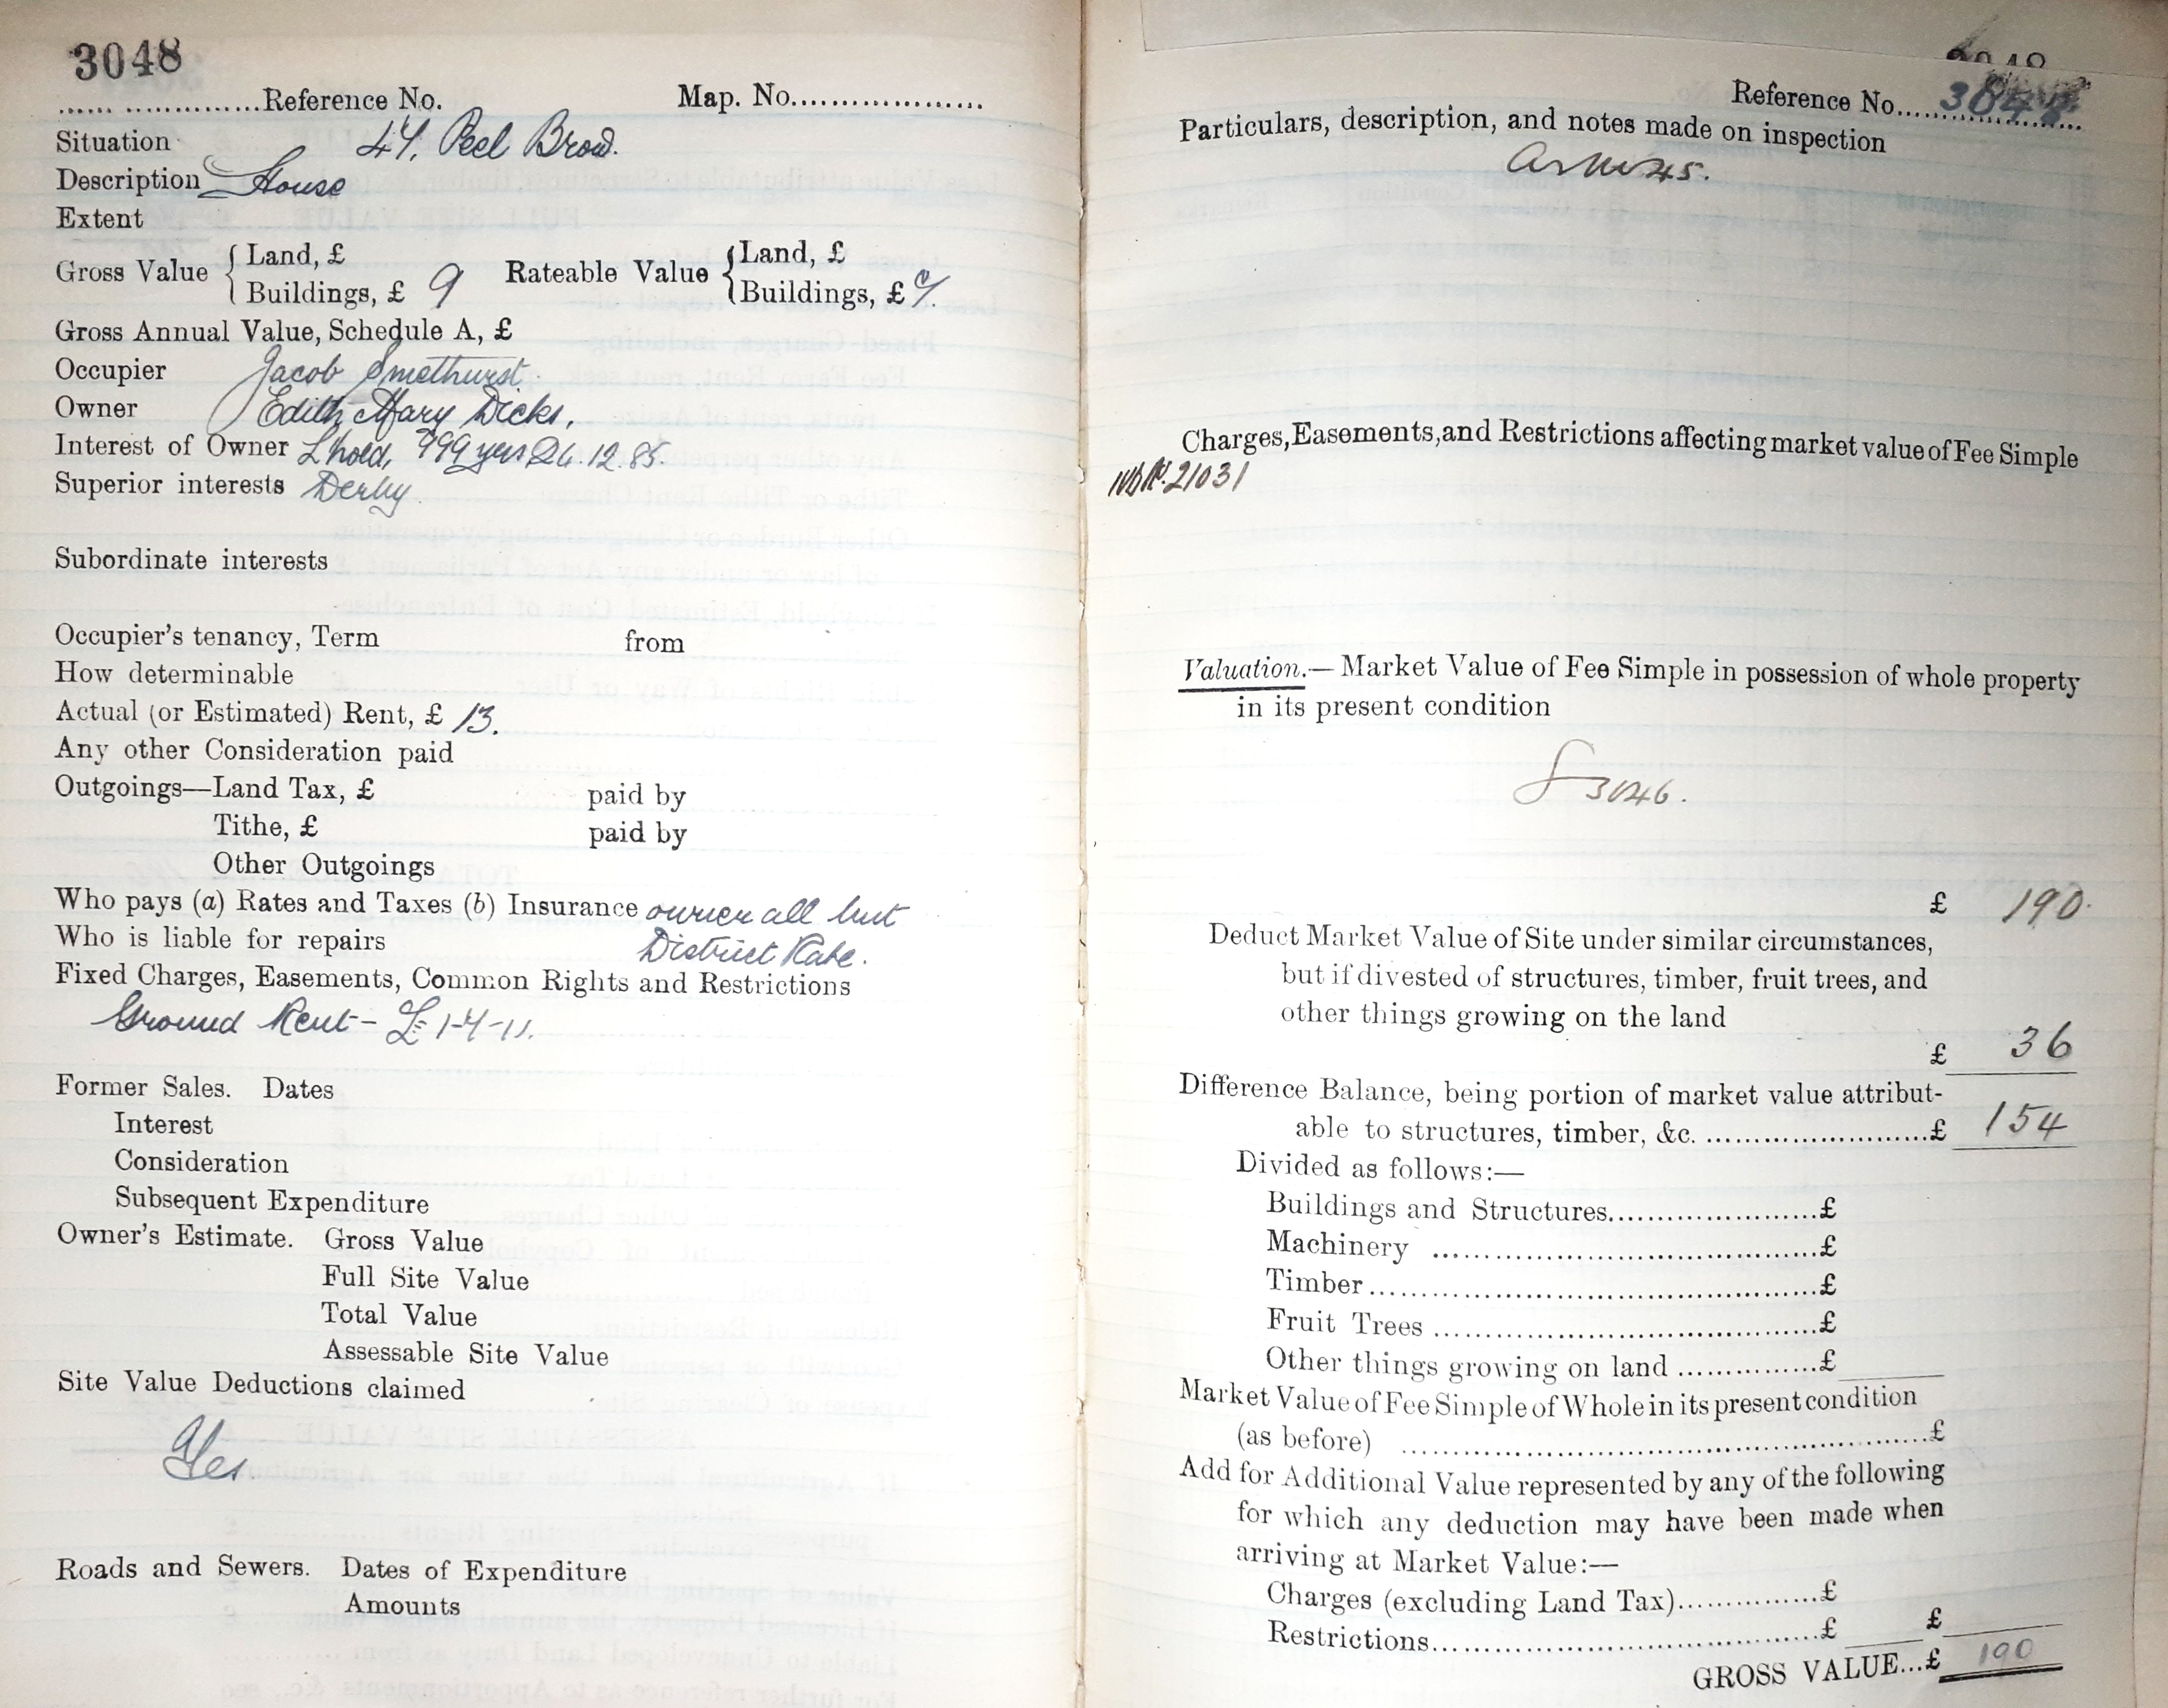 3048
Reference No. Map. No.
Situation 47, Peel Brow.
Description House
Extent
Gross Value { Land, £ Rateable Value { Land, £
Buildings, £ 9 Buildings, £
Gross Annual Value, Schedule A, £
Occupier Jacob Smethurst.
Owner Edith Mary Dicks.
Interest of Owner L'hold, 999 yrs 12.85.
Superior interests Derby
Subordinate interests
Occupier's tenancy, Term from
How determinable
Actual (or Estimated) Rent, £ 13.
Any other Consideration paid
Outgoings—Land Tax, £ paid by
Tithe, £ paid by
Other Outgoings
Who pays (a) Rates and Taxes (b) Insurance owner all but
Who is liable for repairs District Rate.
Fixed Charges, Easements, Common Rights and Restrictions
Ground Rent - £1-4-11.
Former Sales. Dates
Interest
Consideration
Subsequent Expenditure
Owner's Estimate. Gross Value
Full Site Value
Total Value
Assessable Site Value
Site Value Deductions claimed
Yes
Roads and Sewers. Dates of Expenditure
Amounts
Reference No.
Particulars, description, and notes made on inspection
Charges, Easements, and Restrictions affecting market value of Fee Simple
21031
Valuation.—Market Value of Fee Simple in possession of whole property
in its present condition
3046.
£ 190.
Deduct Market Value of Site under similar circumstances,
but if divested of structures, timber, fruit trees, and
other things growing on the land
£ 36
Difference Balance, being portion of market value attribut-
able to structures, timber, &c. £ 154
Divided as follows:—
Buildings and Structures £
Machinery £
Timber £
Fruit Trees £
Other things growing on land £
Market Value of Fee Simple of Whole in its present condition
(as before) £
Add for Additional Value represented by any of the following
for which any deduction may have been made when
arriving at Market Value:—
Charges (excluding Land Tax) £
Restrictions £ £
GROSS VALUE...£ 190